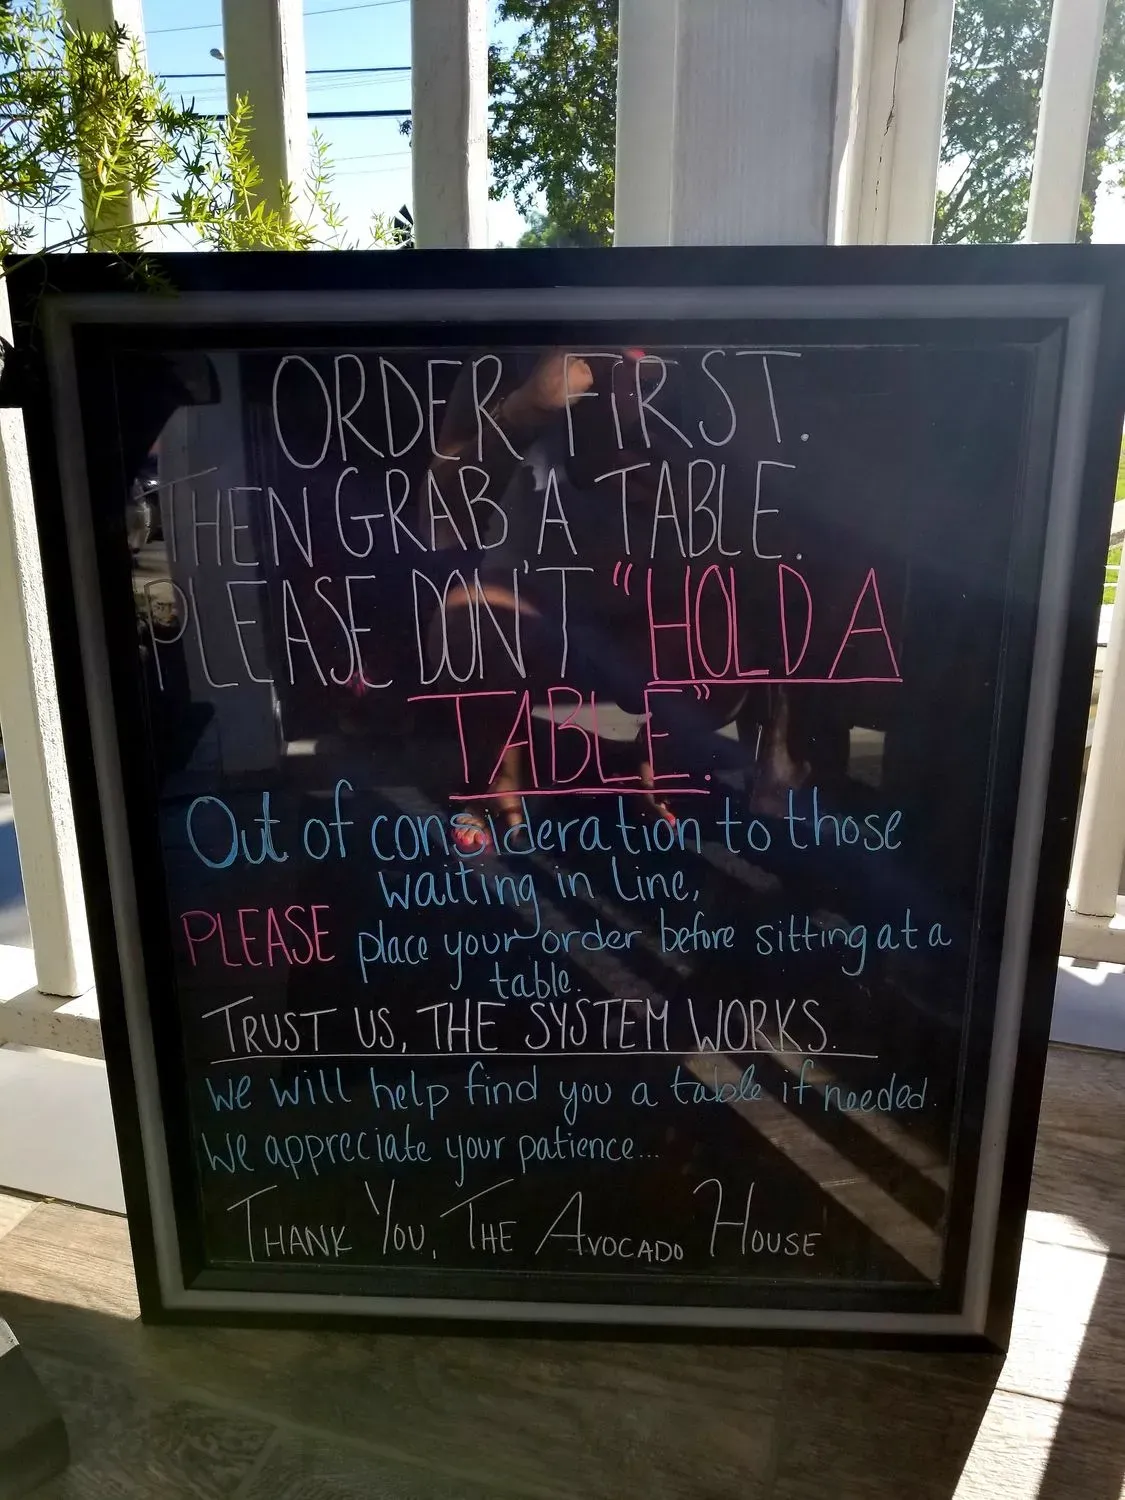 ORDER FIRST.
THEN GRAB A TABLE.
PLEASE DON'T "HOLD A
TABLE".
Out of consideration to those
waiting in line,
PLEASE place your order before sitting at a
table.
TRUST US, THE SYSTEM WORKS.
We will help find you a table if needed.
We appreciate your patience...
THANK YOU, THE AVOCADO HOUSE